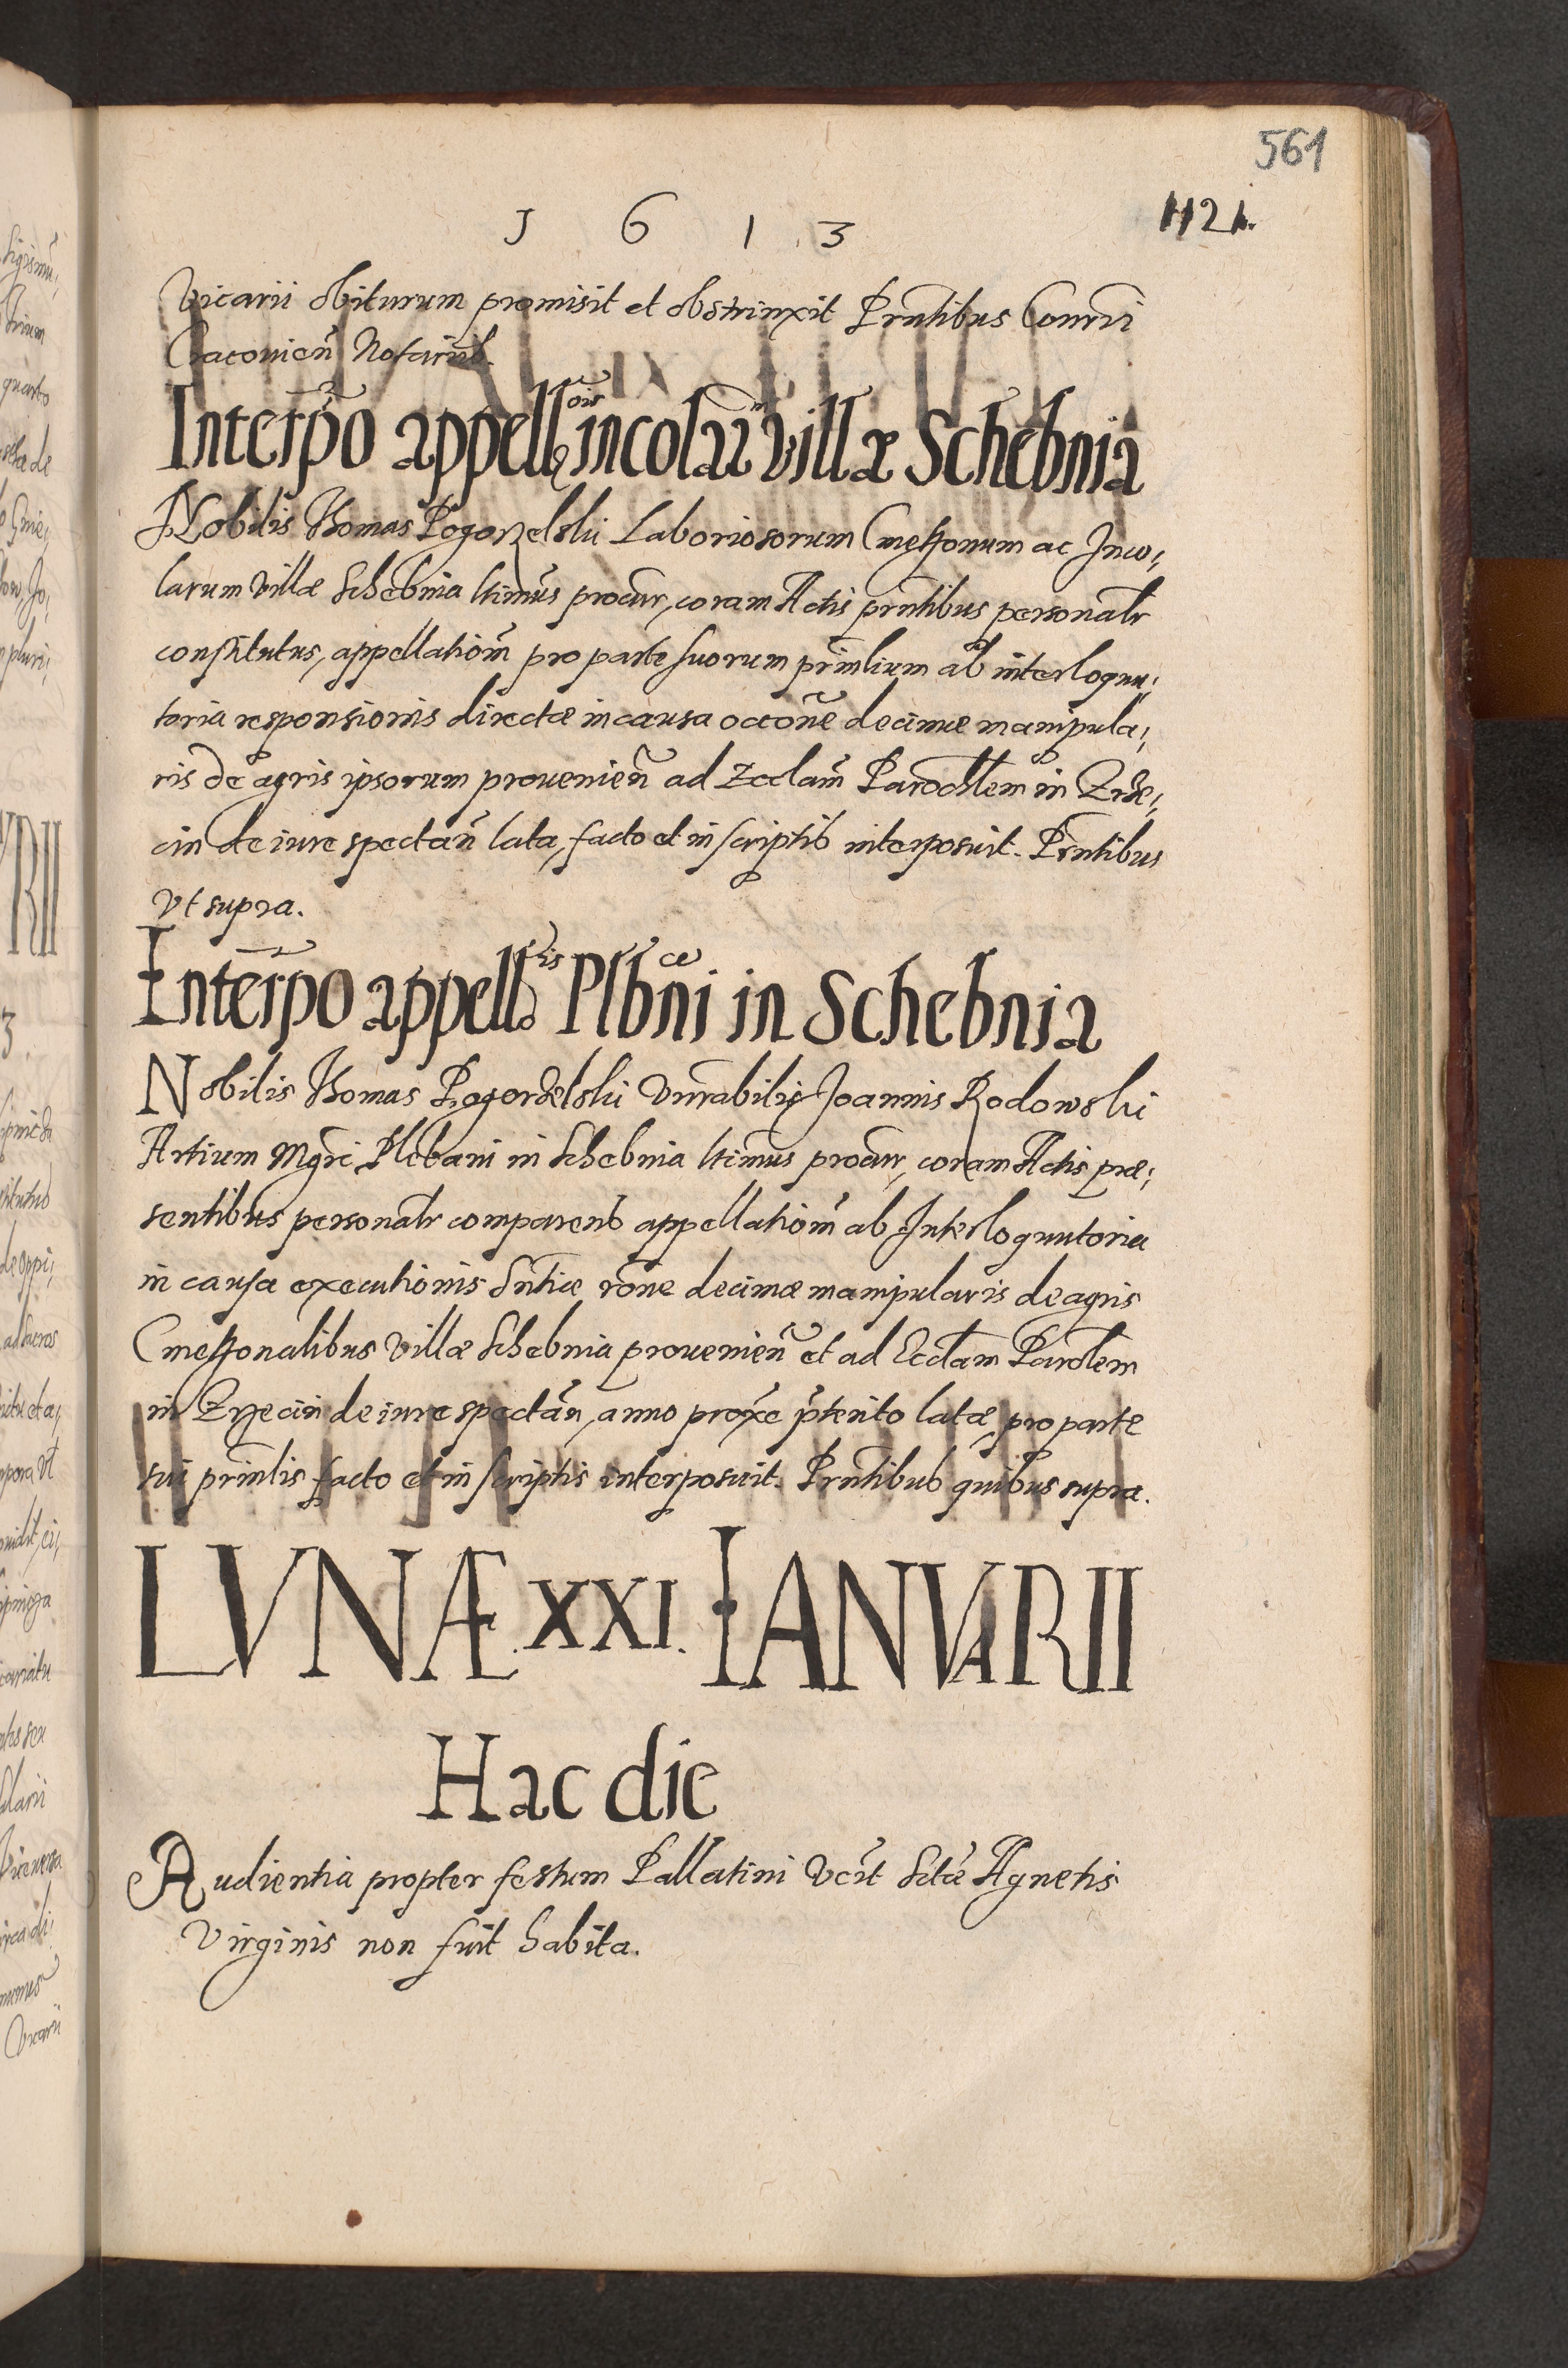 561
1121.
1 6 1 3
Vicarii obiturum promisit et obstrinxit Prñtibus Consrii
Cracovieñ Notariis.
Interpo appellois incolar villæ Schebnia
Nobilis Thomas Pogorzelski Laboriosorum Cmethonum ac Inco¡
larum villæ Schebnia ltimus procur, coram Actis prñtibus personalr
constitutus, appellationẽ pro parte suorum prinlium ab interloquu¡
toria responsionis directæ in causa occone decimæ manipula¡
ris de agris ipsorum provenieñ ad Ecclam Parochlem in Zrze¡
cin de iure spectañ lata, facto et in scriptis interposuit. Prñtibus
Vt supra.
Interpo appellois Plbni in Schebnia
Nobilis Thomas Pogorzelski Vnrabilis Joannis Rodowski
Artium Mgri Plebani in Schebnia ltimus procur, coram Actis præ¡
sentibus personalr comparens appellationẽ ab Interloquutoria
in causa executionis Sntiæ rõne decimæ manipularis de agris
Cmethonalibus villæ Schebnia provenieñ et ad Ecclam Parolem
in Zrzecin de iure spectañ, anno proxe pterito latæ, pro parte
sui prinlis facto et in scriptis interposuit. Prñtibus quibus supra.
LVNÆ XXI. IANVARII
Hac die
Audientia propter festum Pallatini Vcit Sctæ Agnetis
Virginis non fuit habita.